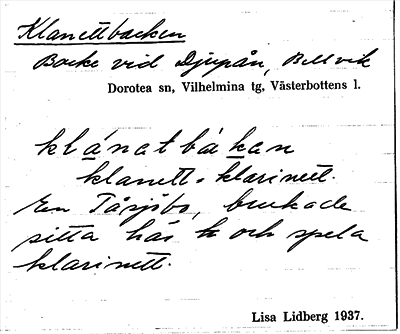 Klanettbacken
Backe vid Djupån, Bellvik
Dorotea sn, Vilhelmina tg, Västerbottens l.
klánatbàkan
klanett = klarinett.
En Tåsjöbo, brukade
sitta här h och spela
klarinett.
Lisa Lidberg 1937.